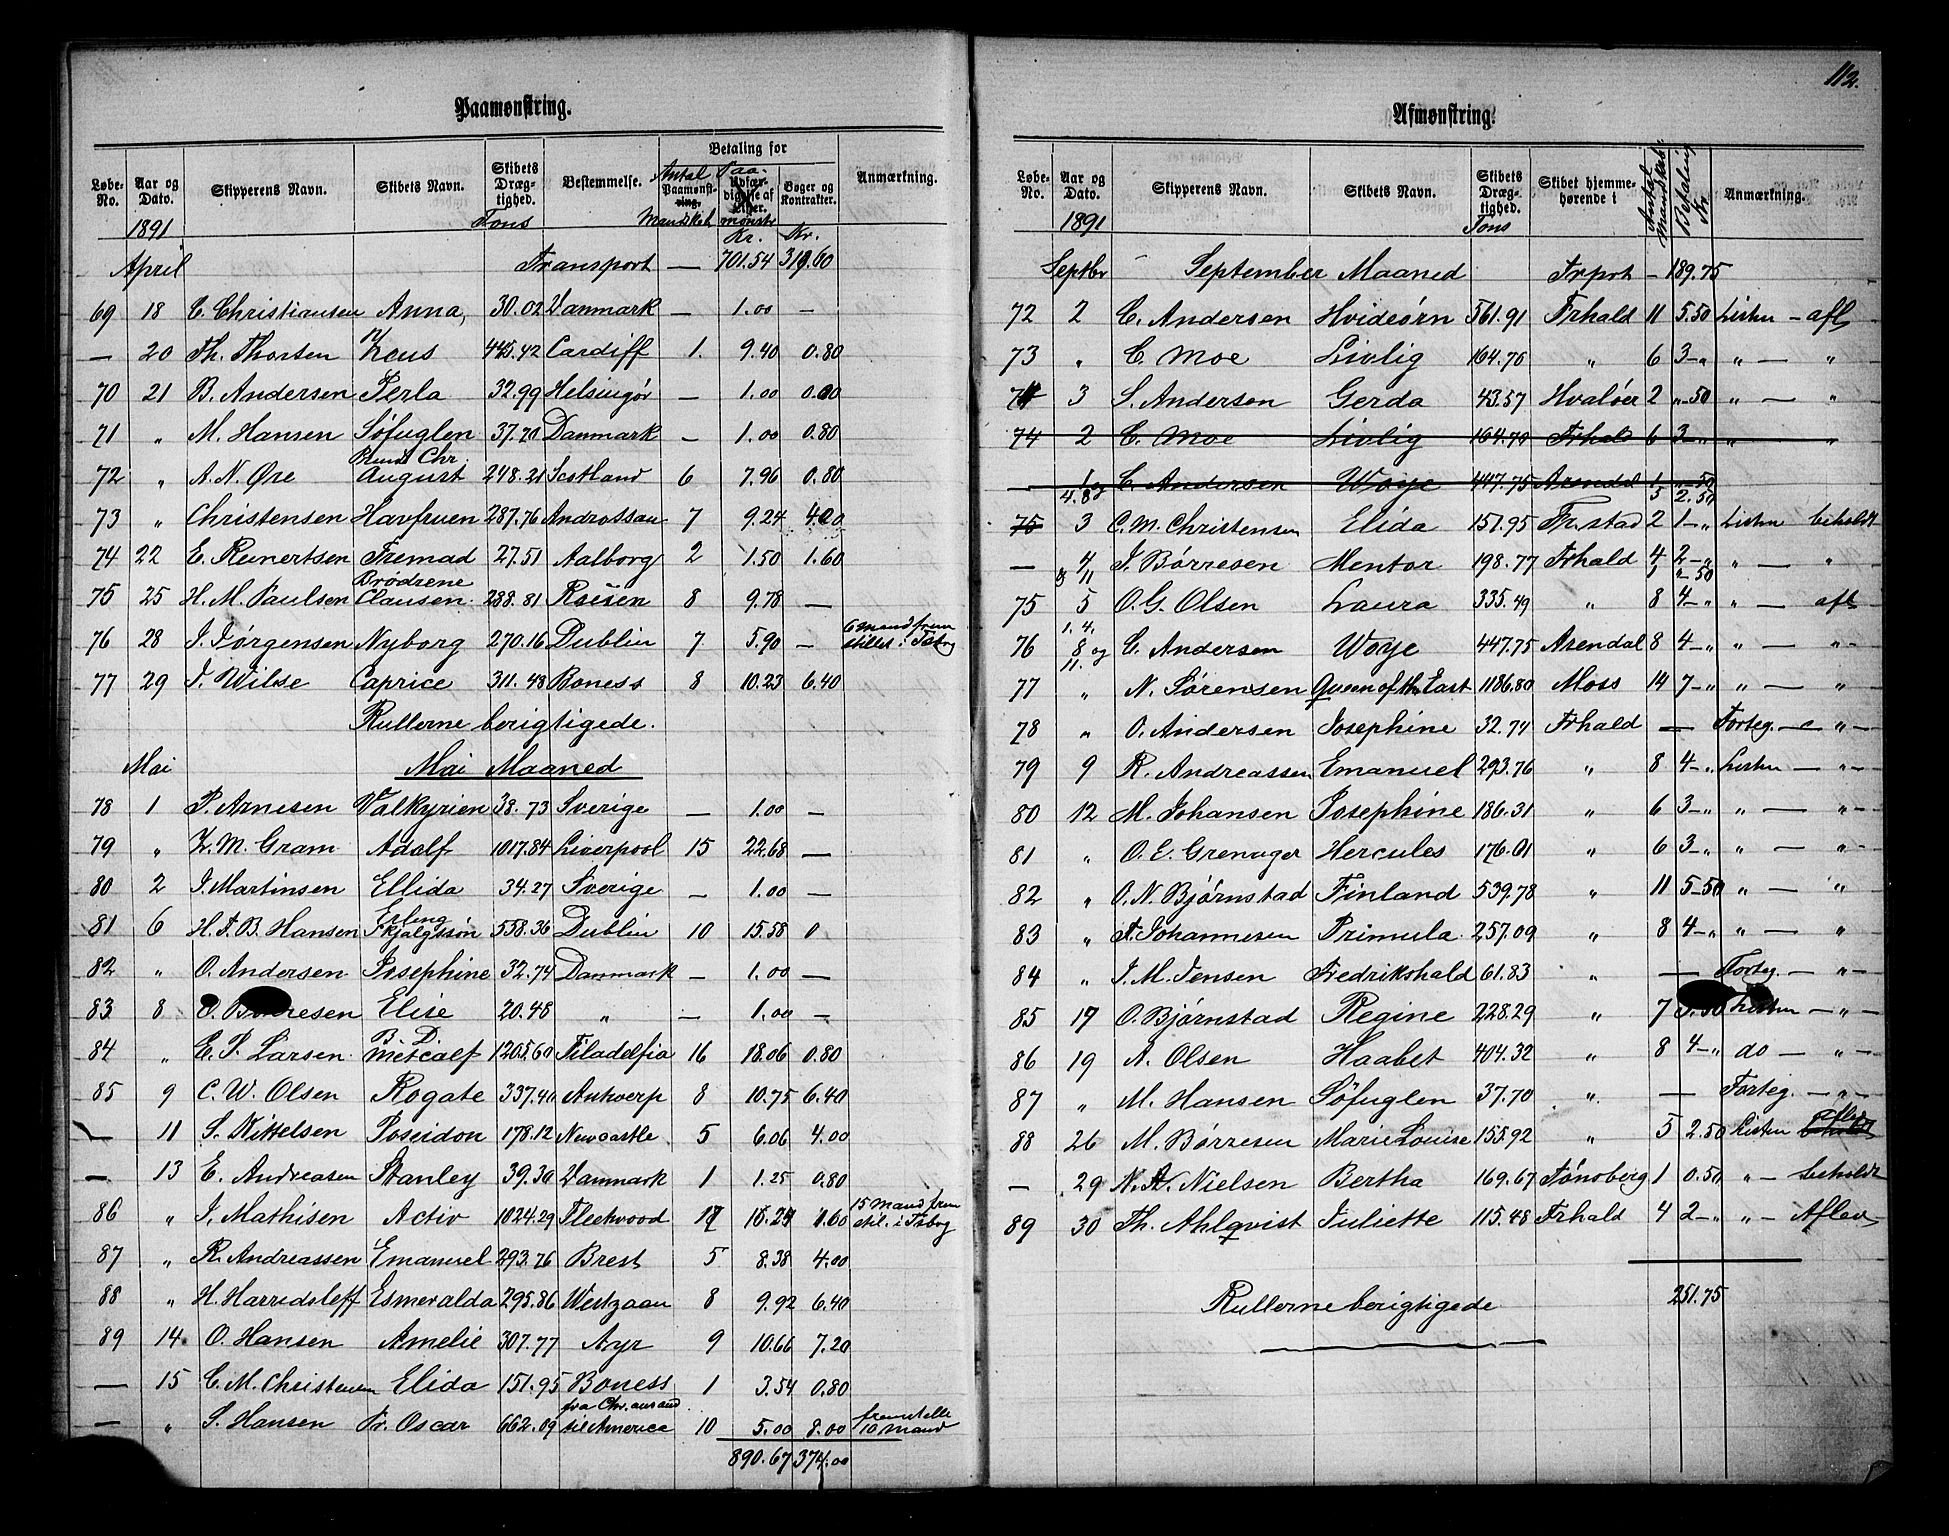 112.
Paamønstring.
Løbe-No. Aar og Dato. Skipperens Navn. Skibets Navn. Skibets Dræg-tighed. Bestemmelse. Antal Paamønst-ring. Mandskab Betaling for Paa-mønstr Bøger og Kontrakter. Anmærkning.
1891 Tons Kr. Kr.
April Transport — 701.54 319.60
69 18 C. Christiansen Anna, 30.02 Danmark — 1.00 —
— 20 Th. Thorsen Zeus 445.42 Cardiff 1. 9.40 0.80
70 21 B. Andersen Perla 32.99 Helsingør — 1.00 0.00
71 " M. Hansen Søfuglen 37.70 Danmark — 1.00 0.80
72 " A. N. Øre Prinds Chr. August 248.21 Scotland 6 7.96 0.80
73 " Christensen Havfruen 287.76 Androssan 7 9.24 4.00
74 22 E. Reinertsen Fremad 27.51 Aalborg 2 1.50 1.60
75 25 H. M. Paulsen Brödrene Clausen 288.81 Roüen 8 9.78 —
76 28 J. Jørgensen Nyborg 270.16 Dublin 7 5.90 — 6 mand frem stillet i Tøbog
77 29 J. Wilse Caprice 311.48 Boness 8 10.23 6.40
Rullerne berigtigede.
Mai Mai Maaned
78 1 P. Arnesen Valkyrien 38.73 Sverige — 1.00 —
79 " Z. M. Gram Adolf 1017.84 Liverpool 15 22.68 —
80 2 J. Martinsen Ellida 34.27 Sverige — 1.00 —
81 6 H. F. B. Hansen Erling Skjalgssøn 558.36 Dublin 10 15.58 0
82 " O. Andersen Josephine 32.74 Danmark — 1.00 —
83 8 O. Børresen Elise 20.48 " — 1.00 —
84 " E. P. Larsen B. D. Metcalf 1205.60 Filadelfia 16 18.06 0.80
85 9 C. W. Olsen Rogate 337.40 Antverp 8 10.75 6.40
— 11 S. Kittelsen Poseidon 178.12 Newcastle 5 6.06 4.00
— 13 E. Andreasen Stanley 39.30 Danmark 1 1.25 0.80
86 " J. Mathisen Activ 1024.29 Fleetwood 17 15.24 1.60 15 mand frem stil. i Tøbog
87 " R. Andreassen Emanuel 293.76 Brest 5 8.38 4.00
88 " H. Harridsleff Esmeralda 295.86 Westzaan 8 9.92 6.40
89 14. O. Hansen Amelie 307.77 Ayr 9 10.66 7.20
— 15 C. M. Christensen Elida 151.95 Boness 1 3.54 0.80
— " S. Hansen Pr. Oscar 662.09 fra Chr.ansand til America 10 5.00 8.00 fremstille 10 mand
890.67 374.00
Afmønstring.
Løbe-No. Aar og Dato. Skipperens Navn. Skibets Navn. Skibets Dræg-tighed. Skibet hjemme-hørende i Antal Mandskab Betaling Kr Anmærkning.
1891 Tons
Septbr September Maaned Trprt — 189.75
72 2 C. Andersen Hvideørn 561.91 Frhald 11 5.50 Listen — afl
73 " C. Moe Livlig 164.70 " 6 3—" " — "
74 3 S. Andersen Gerda 43.57 Hvaløer 2 "—50 " — "
74 2 C. Moe Livlig 164.70 Frhald 6 3—" " "
— 1 og C. Andersen Woye 447.75 Arendal 1 "—50
75 4. 8 3 C. M. Christensen Elida 151.95 Fr.stad 5 2 2.50 1—" Listen beholdt
— 4 & 11 J. Børresen Mentor 198.77 Frhald 4 1 2—" "—50 " — "
75 5 O. G. Olsen Laura 335.49 " 8 4—" " — afl
76 1. 4. 8 og 11. C. Andersen Woye 447.75 Arendal 8 4—" " — "
77 " N. Sørensen Queen of the East 1186.80 Moss 14 7—" " — "
78 " O. Andersen Josephine 32.74 Frhald — Forteg. — "—
79 9 R. Andreassen Emanuel 293.76 " 8 4—" Listen — "—
80 12 M. Johansen Josephine 186.31 " 6 3—" " — "—
81 " O. E. Grenager Hercules 176.01 " 6 3—" " — "
82 " O. N. Bjørnstad Finland 539.78 " 11 5—50 " — "
83 " A. Johannesen Primula 257.09 " 8 4—" " — "
84 " J. M. Jensen Fredrikshald 61.83 " — Forteg. — "—
85 17 O. Bjørnstad Regine 228.29 " 7 3.50 Listen — "—
86 19 N. Olsen Haabet 404.32 " 8 4—" do — "—
87 " M. Hansen Söfuglen 37.70 " — Forteg. — "—
88 26 M. Børresen Marie Louise 155.92 " 5 2.50 Listen aflev beholdt
— 29 N. A. Nielsen Bertha 169.67 Tønsberg 1 0.50 " — beholdt
89 30 Th. Ahlqvist Juliette 115.48 Frhald 4 2—" " — Aflev
251.75
Rullerne berigtigede